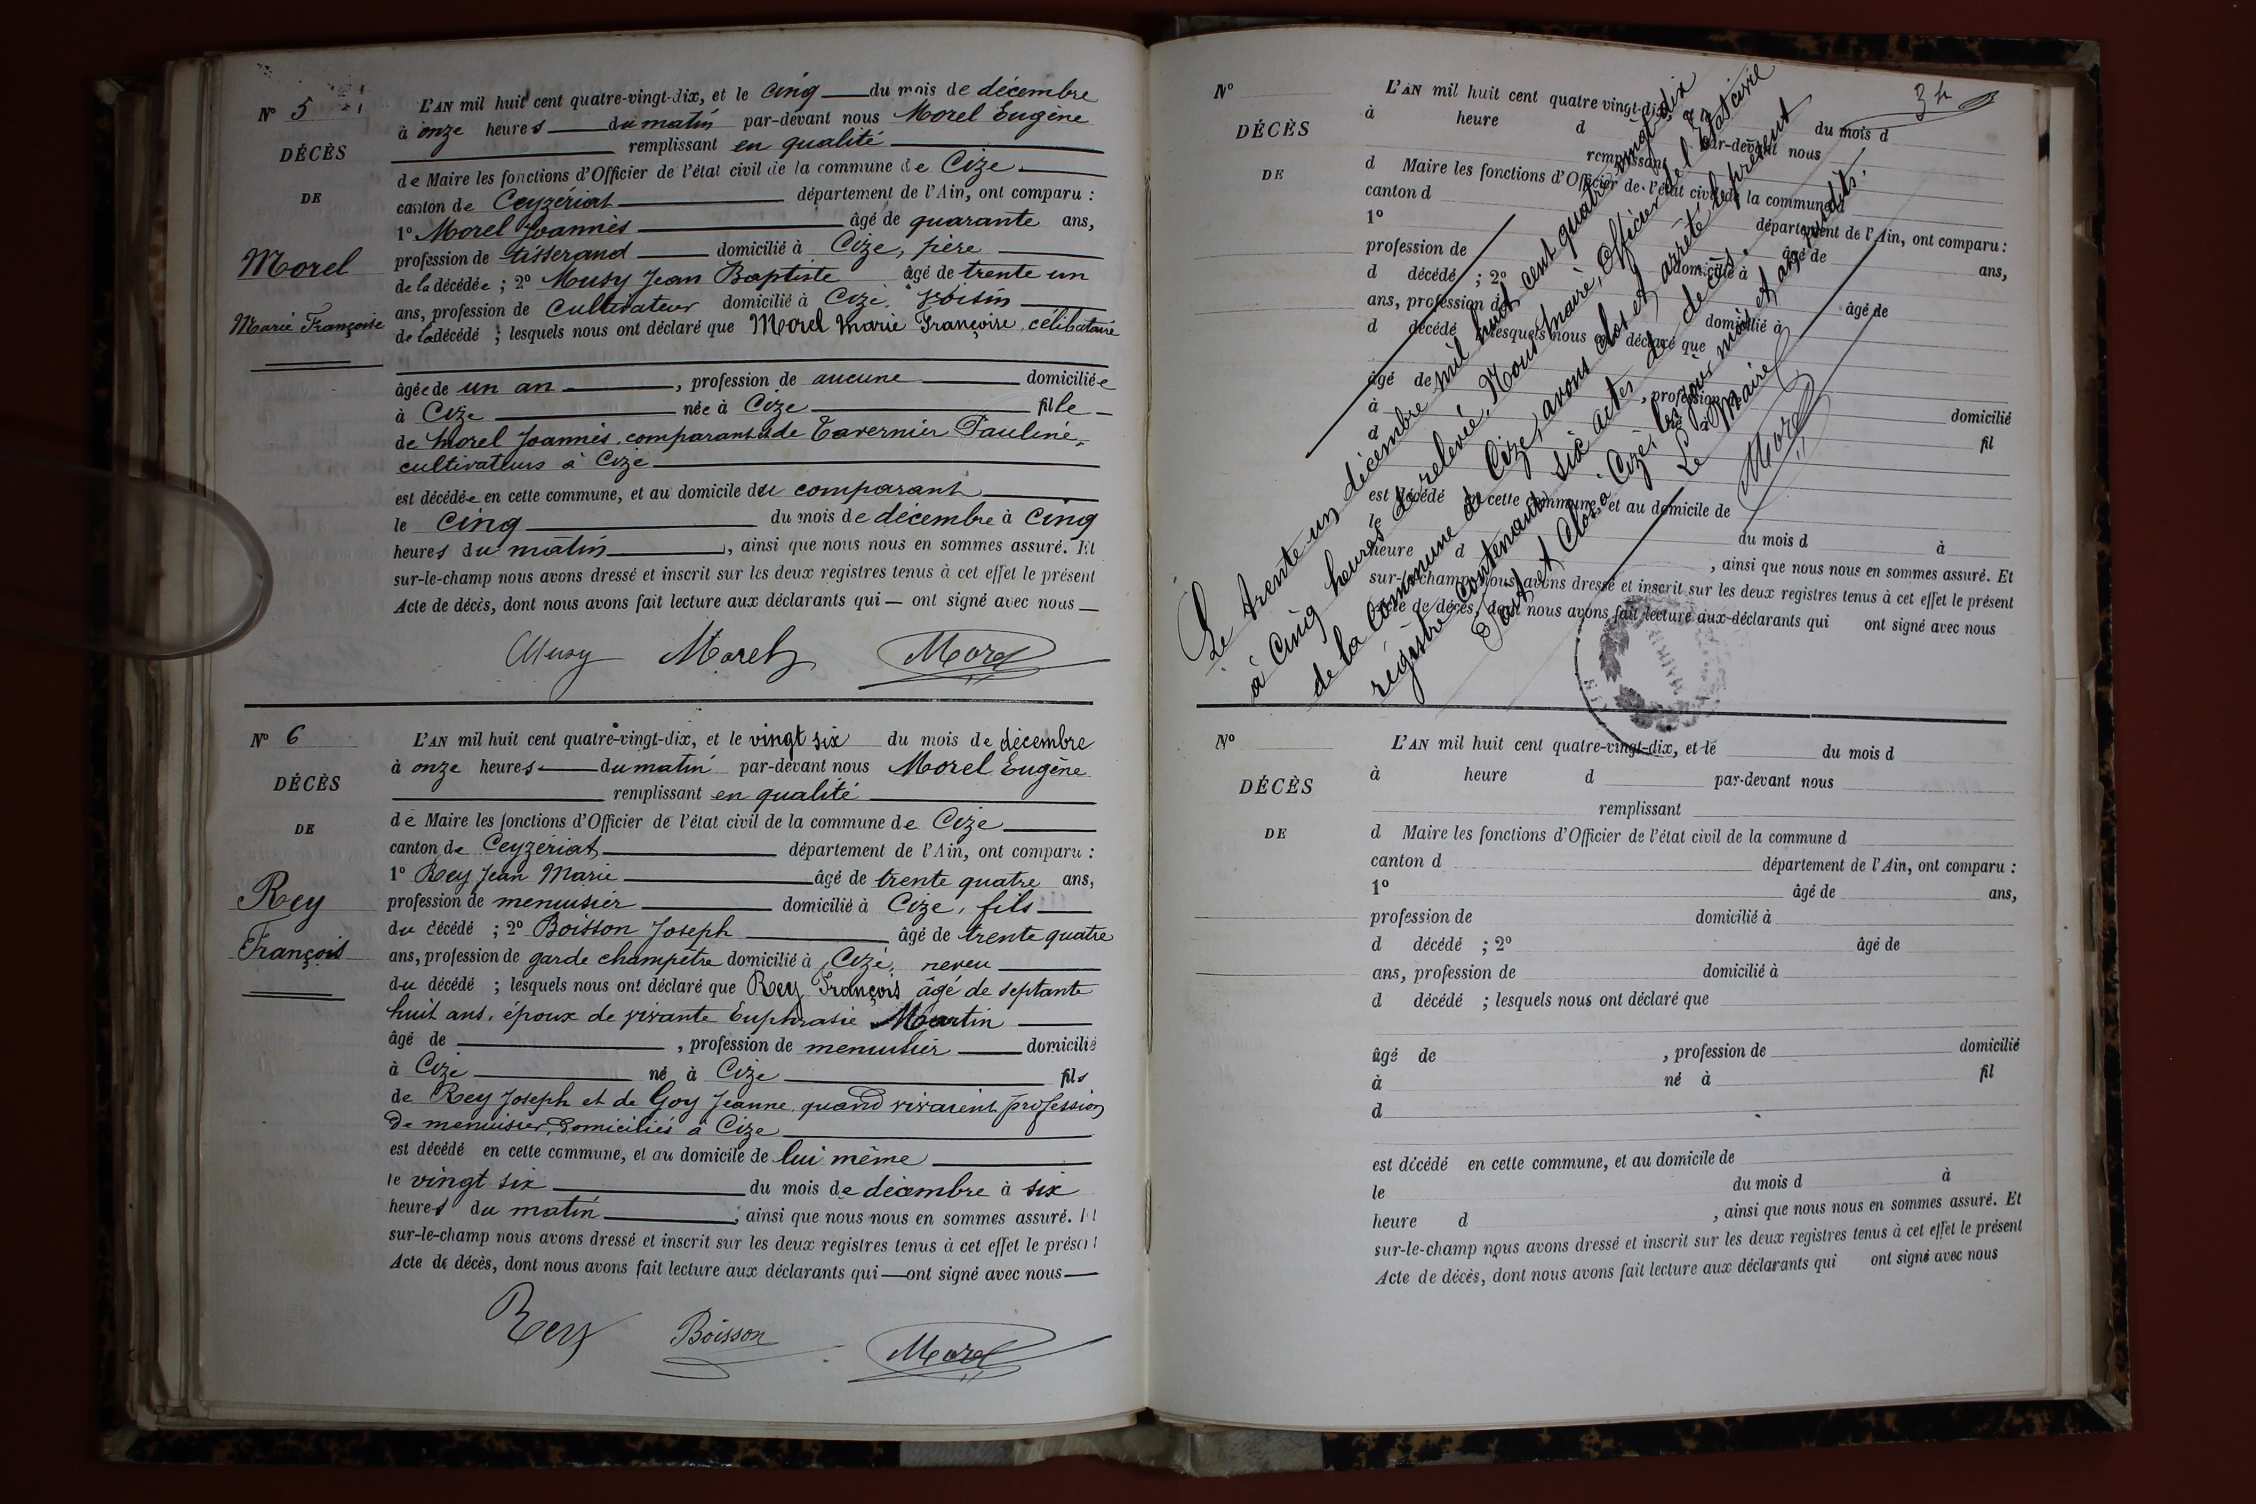 N° 5
DÉCÈS
DE
Morel
Marie Françoise
L'AN mil huit cent quatre-vingt-dix, et le cinq du mois de décembre
à onze heures du matin par-devant nous Morel Eugène
remplissant en qualité
de Maire les fonctions d'Officier de l'état civil de la commune de Cize
canton de Ceyzériat département de l'Ain, ont comparu :
1° Morel Joannès âgé de quarante ans,
profession de tisserand domicilié à Cize, père
de la décédée ; 2° Musy Jean Baptiste âgé de trente un
ans, profession de cultivateur domicilié à Cize, voisin
de la décédé ; lesquels nous ont déclaré que Morel Marie Françoise, célibataire
âgée de un an , profession de aucune domiciliée
à Cize née à Cize fille
de Morel Joannès, comparant et de Tavernier Pauline,
cultivateurs à Cize
est décédée en cette commune, et au domicile du comparant
le cinq du mois de décembre à cinq
heures du matin , ainsi que nous nous en sommes assuré. Et
sur-le-champ nous avons dressé et inscrit sur les deux registres tenus à cet effet le présent
Acte de décès, dont nous avons fait lecture aux déclarants qui — ont signé avec nous —
Musy Morel Morel
N° 6
DÉCÈS
DE
Rey
François
L'AN mil huit cent quatre-vingt-dix, et le vingt six du mois de décembre
à onze heures du matin par-devant nous Morel Eugène
remplissant en qualité
de Maire les fonctions d'Officier de l'état civil de la commune de Cize
canton de Ceyzériat département de l'Ain, ont comparu :
1° Rey Jean Marie âgé de trente quatre ans,
profession de menuisier domicilié à Cize, fils
du décédé ; 2° Boisson Joseph âgé de trente quatre
ans, profession de garde champêtre domicilié à Cize, neveu
du décédé ; lesquels nous ont déclaré que Rey François âgé de septante
huit ans, époux de vivante Euphrasie Martin
âgé de , profession de menuisier domicilié
à Cize né à Cize fils
de Rey Joseph et de Goy Jeanne quand vivaient profession
de menuisier, domiciliés à Cize
est décédé en cette commune, et au domicile de lui même
le vingt six du mois de décembre à six
heures du matin , ainsi que nous nous en sommes assuré. Et
sur-le-champ nous avons dressé et inscrit sur les deux registres tenus à cet effet le présent
Acte de décès, dont nous avons fait lecture aux déclarants qui — ont signé avec nous —
Rey Boisson Morel
N°
DÉCÈS
DE
L'AN mil huit cent quatre-vingt-dix, et le du mois d
à heure d par-devant nous
remplissant
d Maire les fonctions d'Officier de l'état civil de la commune d
canton d département de l'Ain, ont comparu :
1° âgé de ans,
profession de domicilié à
d décédé ; 2° âgé de
ans, profession de domicilié à
d décédé ; lesquels nous ont déclaré que
âgé de , profession de domicilié
à fil
d
est décédé en cette commune, et au domicile de
le du mois d à
heure d , ainsi que nous nous en sommes assuré. Et
sur-le-champ nous avons dressé et inscrit sur les deux registres tenus à cet effet le présent
Acte de décès, dont nous avons fait lecture aux déclarants qui ont signé avec nous
Le trente un décembre mil huit cent quatre vingt dix
à cinq heures de relevée, Nous maire, Officier de l'Etat civil
de la Commune de Cize, avons clos et arrêté le présent
régistre contenant six actes de décès.
Fait et clos à Cize, les jour, mois et an susdits.
Le Maire
Morel
MAIRIE
N°
DÉCÈS
DE
L'AN mil huit cent quatre-vingt-dix, et le du mois d
à heure d par-devant nous
remplissant
d Maire les fonctions d'Officier de l'état civil de la commune d
canton d département de l'Ain, ont comparu :
1° âgé de ans,
profession de domicilié à
d décédé ; 2° âgé de
ans, profession de domicilié à
d décédé ; lesquels nous ont déclaré que
âgé de , profession de domicilié
à né à fil
d
est décédé en cette commune, et au domicile de
le du mois d à
heure d , ainsi que nous nous en sommes assuré. Et
sur-le-champ nous avons dressé et inscrit sur les deux registres tenus à cet effet le présent
Acte de décès, dont nous avons fait lecture aux déclarants qui ont signé avec nous